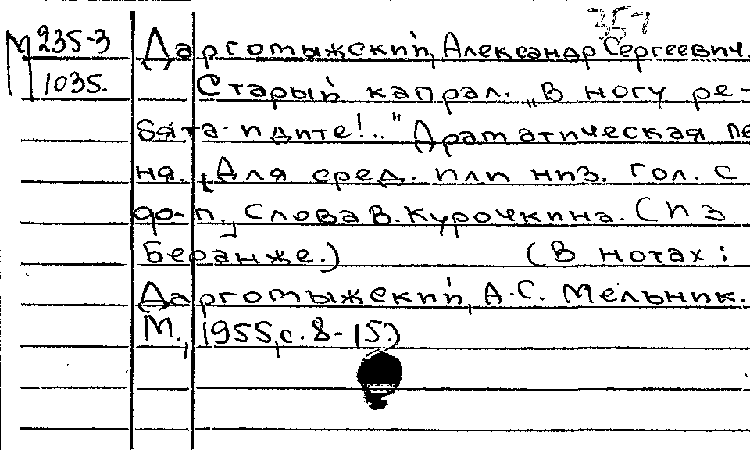 357
М 235-3 Даргомыжский, Александр Сергеевич.
1035. Старый капрал. „В ногу ре-
бята идите!.." Драматическая пе
ня. Для сред. или низ. гол. с
ф-п., Слова В. Курочкина. (Из
Беранже.) (В нотах:
Даргомыжский, А.С. Мельник.
М., 1955, с. 8-15.)